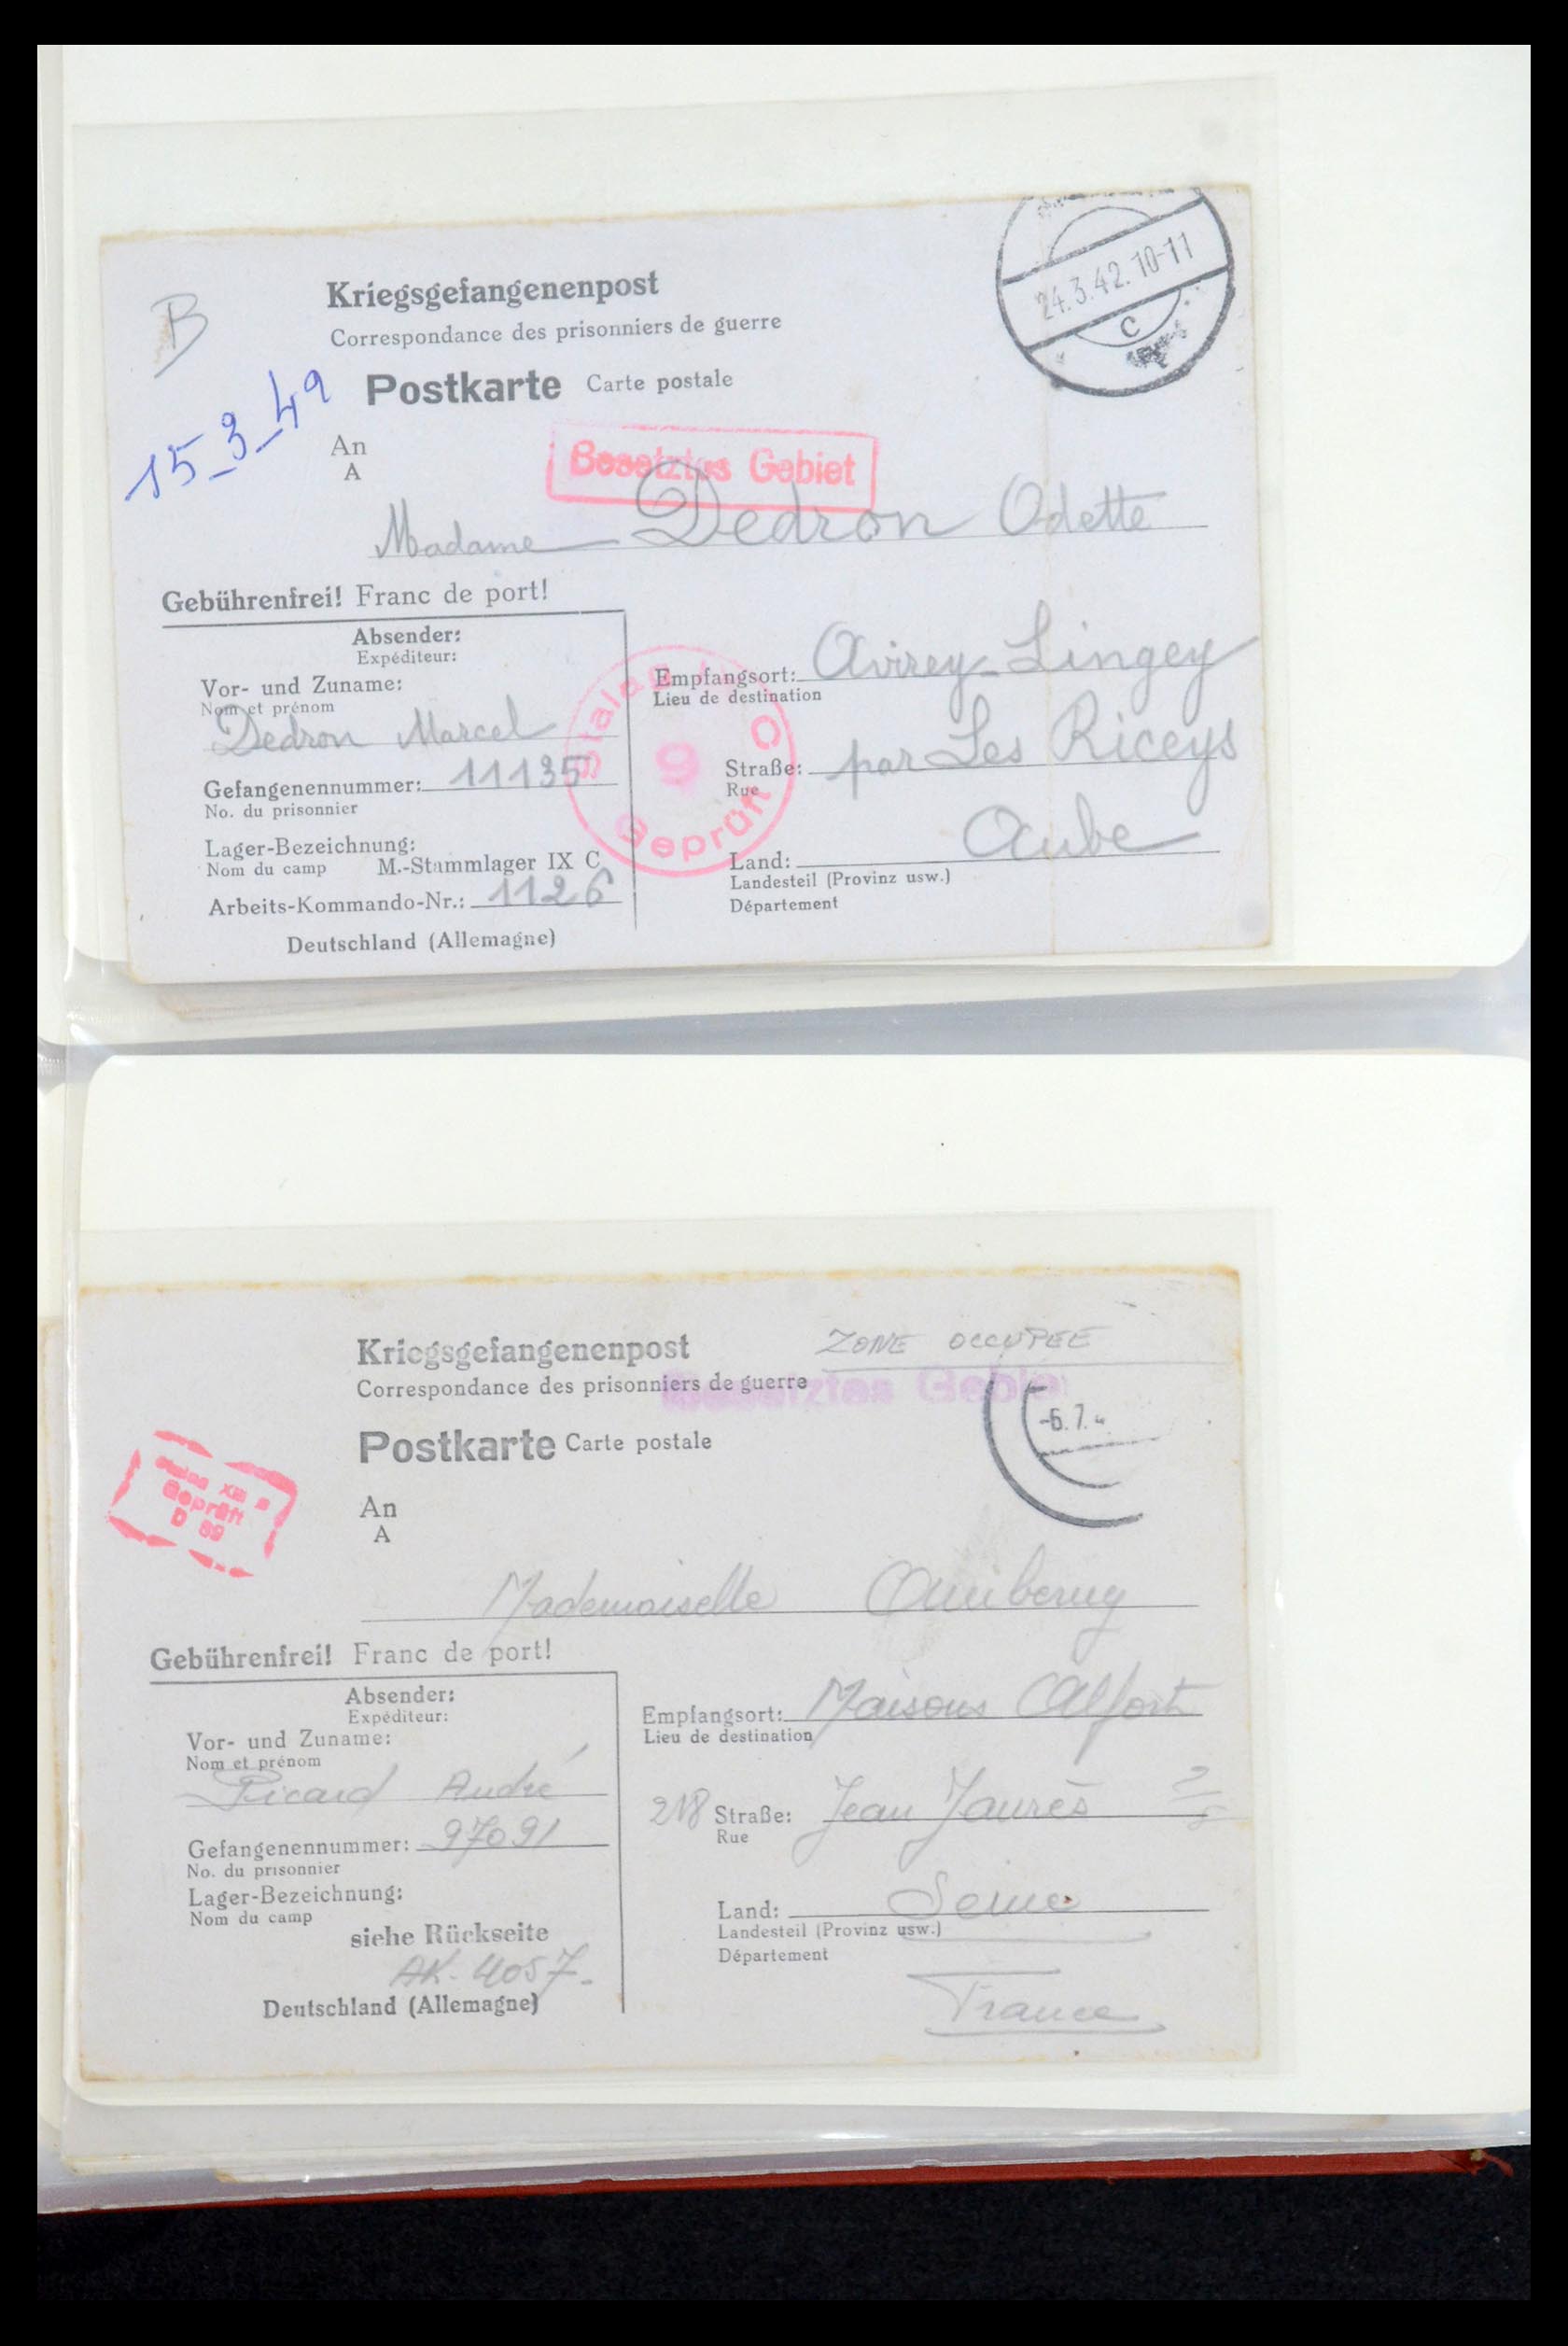 B
Kriegsgefangenenpost
Correspondance des prisonniers de guerre
24.3.42.10-11
c
Postkarte Carte postale
15_3_42
An
A
Besetztes Gebiet
Madame Dedron Odette
Gebührenfrei! Franc de port!
Absender:
Expéditeur:
Vor- und Zuname:
Nom et prénom
Dedron Marcel
Gefangenennummer: 11135
No. du prisonnier
Lager-Bezeichnung:
Nom du camp M.-Stammlager IX C
Arbeits-Kommando-Nr.: 1126
Deutschland (Allemagne)
Stalag
9
Geprüft
Empfangsort: Avirey-Lingey
Lieu de destination
Straße: par Les Riceys
Rue
Aube
Land:
Landesteil (Provinz usw.)
Département
Kriegsgefangenenpost
ZONE OCCUPEE
Correspondance des prisonniers de guerre
Besetztes Gebiet
-6.7.4
Postkarte Carte postale
Stalag XIII
Geprüft
D 89
An
A
Mademoiselle
Gebührenfrei! Franc de port!
Absender:
Expéditeur:
Vor- und Zuname:
Nom et prénom
Picard André
Gefangenennummer: 97091
No. du prisonnier
Lager-Bezeichnung:
Nom du camp
siehe Rückseite
AK. 4057.
Deutschland (Allemagne)
Empfangsort: Maisons Alfort
Lieu de destination
218 Straße: Jean Jaurès
Rue
Land: Seine
Landesteil (Provinz usw.)
Département
France